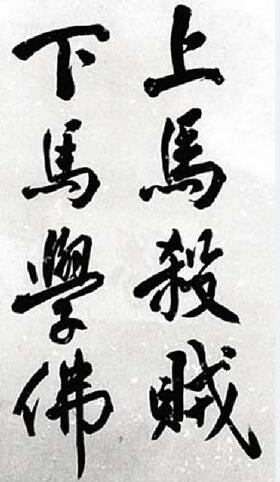 上馬殺賊
下馬學佛